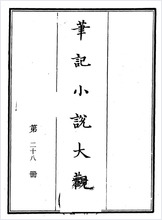 筆記小說大觀
第二十八冊